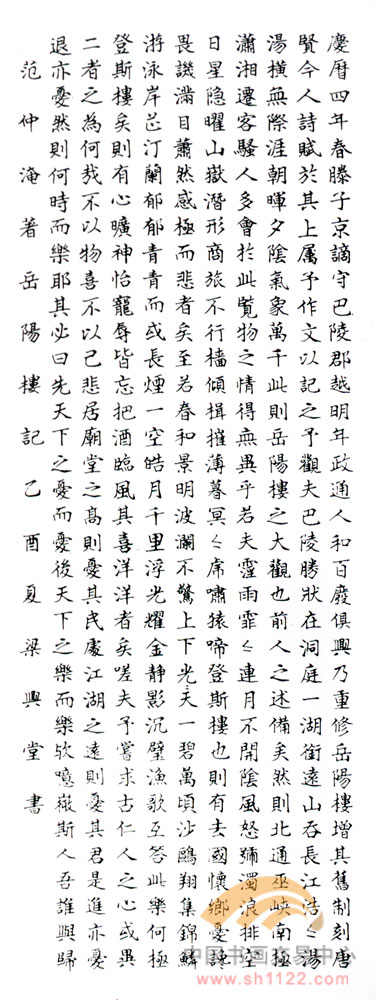 慶曆四年春滕子京謫守巴陵郡越明年政通人和百廢俱興乃重修岳陽樓增其舊制刻唐
賢今人詩賦於其上属予作文以記之予觀夫巴陵勝狀在洞庭一湖銜遠山吞長江浩〻湯
湯横無際涯朝暉夕陰氣象萬千此則岳陽樓之大觀也前人之述備矣然則北通巫峽南極
瀟湘遷客騷人多會於此覧物之情得無異乎若夫霪雨霏〻連月不開陰風怒號濁浪排空
日星隐曜山嶽潛形商旅不行檣傾楫摧薄暮冥〻虎嘯猿啼登斯樓也則有去國懷鄉憂讒
畏譏滿目蕭然感極而悲者矣至若春和景明波瀾不驚上下天光一碧萬頃沙鷗翔集錦鱗
游泳岸芷汀蘭郁郁青青而或長煙一空皓月千里浮光耀金静影沉璧漁歌互答此樂何極
登斯樓矣則有心曠神怡寵辱皆忘把酒臨風其喜洋洋者矣嗟夫予嘗求古仁人之心或異
二者之為何哉不以物喜不以己悲居廟堂之高則憂其民處江湖之遠則憂其君是進亦憂
退亦憂然則何時而樂耶其必曰先天下之憂而憂後天下之樂而樂欤噫微斯人吾誰與歸
范仲淹著岳陽樓記乙酉夏梁興堂書
中国书画交易中心
www.sh1122.com